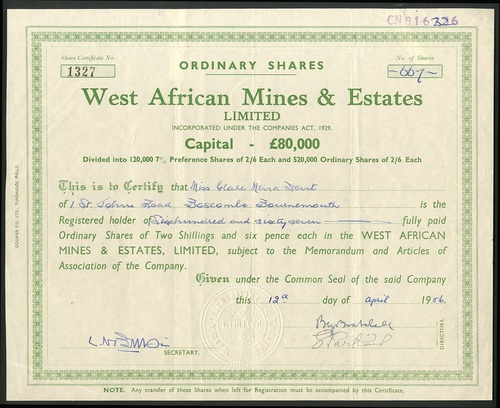 CN816326
Share Certificate No. No. of Shares
1327 ORDINARY SHARES -667-
West African Mines & Estates
LIMITED
INCORPORATED UNDER THE COMPANIES ACT, 1929.
Capital - £80,000
Divided into 120,000 7% Preference Shares of 2/6 Each and 520,000 Ordinary Shares of 2/6 Each
This is to Certify that Miss Clare
of 1 St. Johns Road, Boscombe, Bournemouth is the
Registered holder of Sixhundred and sixty seven fully paid
Ordinary Shares of Two Shillings and six pence each in the WEST AFRICAN
MINES & ESTATES, LIMITED, subject to the Memorandum and Articles of
Association of the Company.
Given under the Common Seal of the said Company
this 12th day of April 1956.
SECRETARY.
DIRECTORS.
NOTE. Any transfer of these Shares when left for Registration must be accompanied by this Certificate.